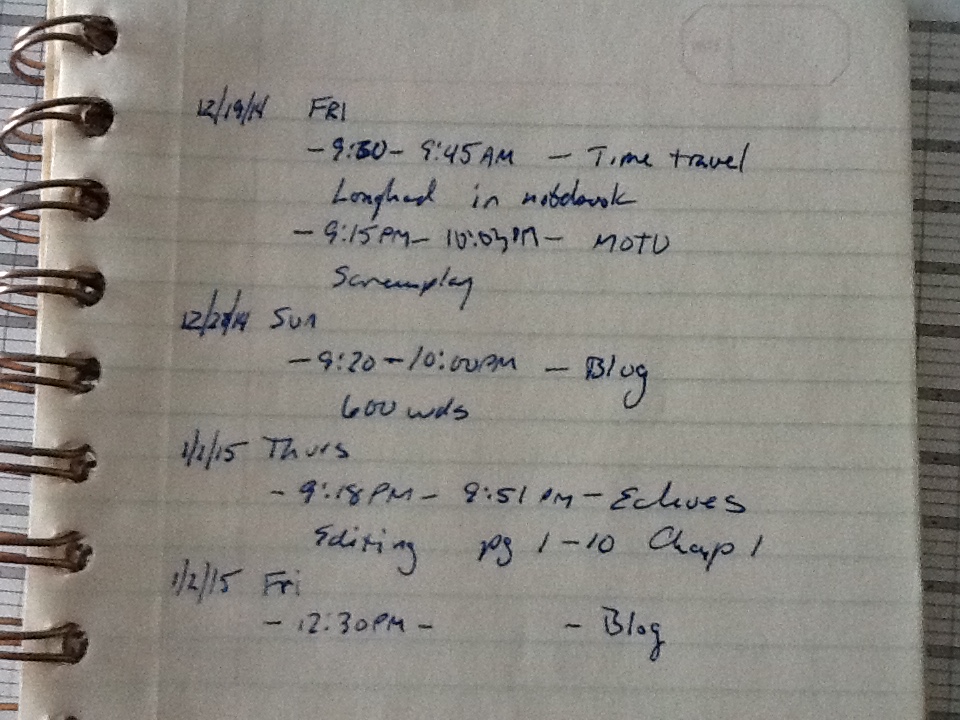 12/19/14 FRI
- 9:30 - 9:45 AM - Time travel
Longhad in notebook
- 9:15 PM - 10:03 PM - MOTU
Screenplay
12/21/14 Sun
- 9:20 - 10:00 PM - Blog
600 wds
1/1/15 Thurs
- 9:18 PM - 9:51 PM - Echoes
Editing pg 1-10 Chap 1
1/2/15 Fri
- 12:30 PM - - Blog